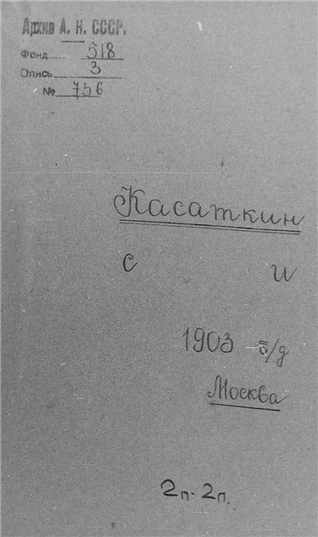 Архив А. Н. СССР.
Фонд 518
Опись 3
№ 736
Касаткин
С И
1903 б/д
Москва
2п-2п.